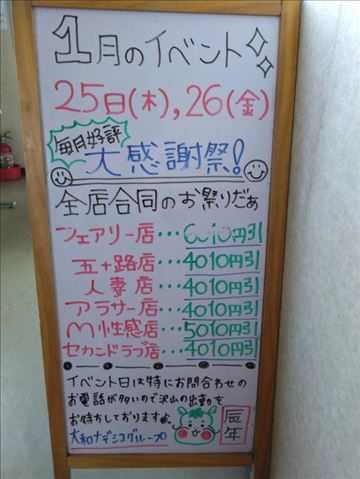 1月のイベント
25日(木),26(金)
毎月好評
大感謝祭!
全店合同のお祭りだぁ
フェアリー店・・・6010円引
五十路店・・・4010円引
人妻店・・・4010円引
アラサー店・・・4010円引
M性感店・・・5010円引
セカンドラブ店・・・4010円引
イベント日は特にお問合わせの
お電話が多いので沢山の出勤を
お待ちしております
大和ナデシコグループ
辰年